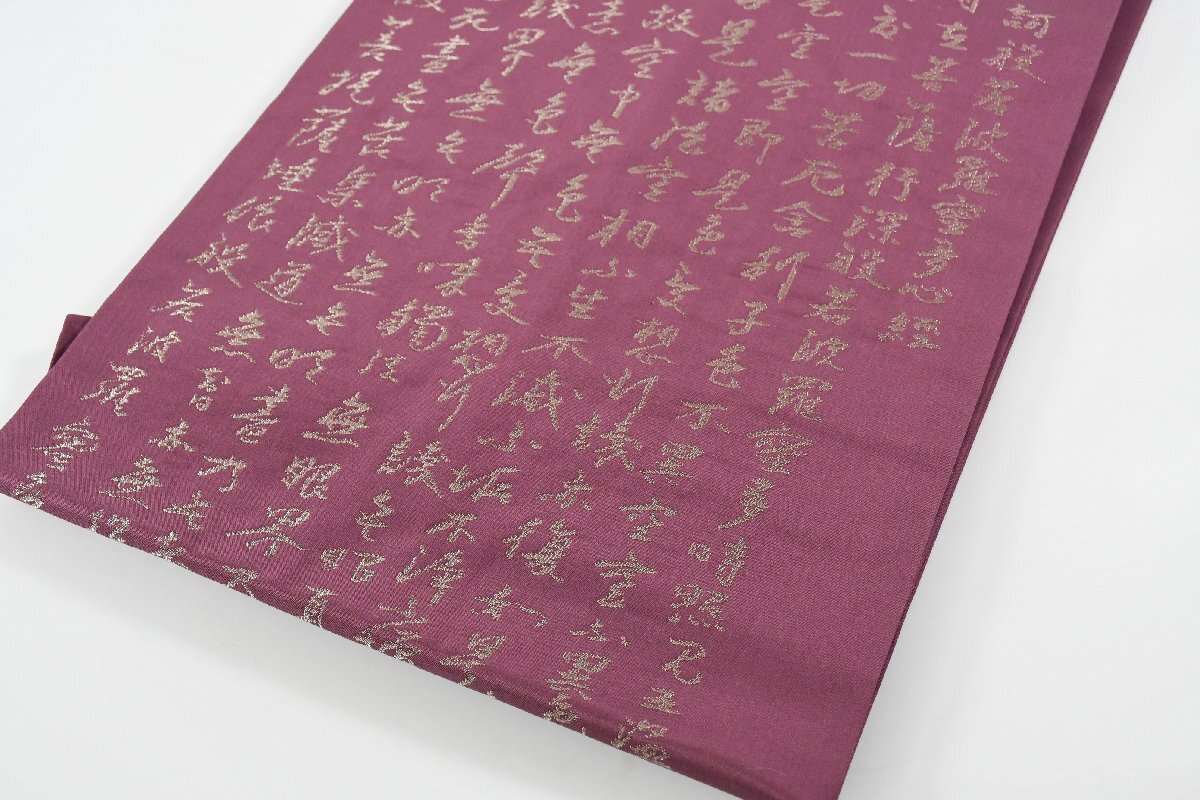 訶般若波羅蜜多心經
在菩薩行深般若波羅蜜多時照見五蘊
度一切苦厄舍利子色不異空空不異色
空空即是色受想行識亦復如是
是諸法空相不生不滅不垢不淨不增
故空中無色無受想行識無眼耳
意無色聲香味觸法無眼界
界無無明亦無無明盡乃至
死盡無苦集滅道無智亦無得
菩提薩埵依般若波羅蜜多